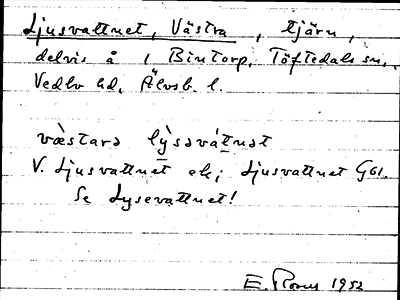 Ljusvattnet, Västra, tjärn,
delvis å 1 Bintorp, Töftedals sn,
Vedbo hd, Älvsb. l.
væ̀stara ly̆̀savátnat
V. Ljusvattnet ek; Ljusvattnet G61.
Se Lysevattnet!
E. 1952